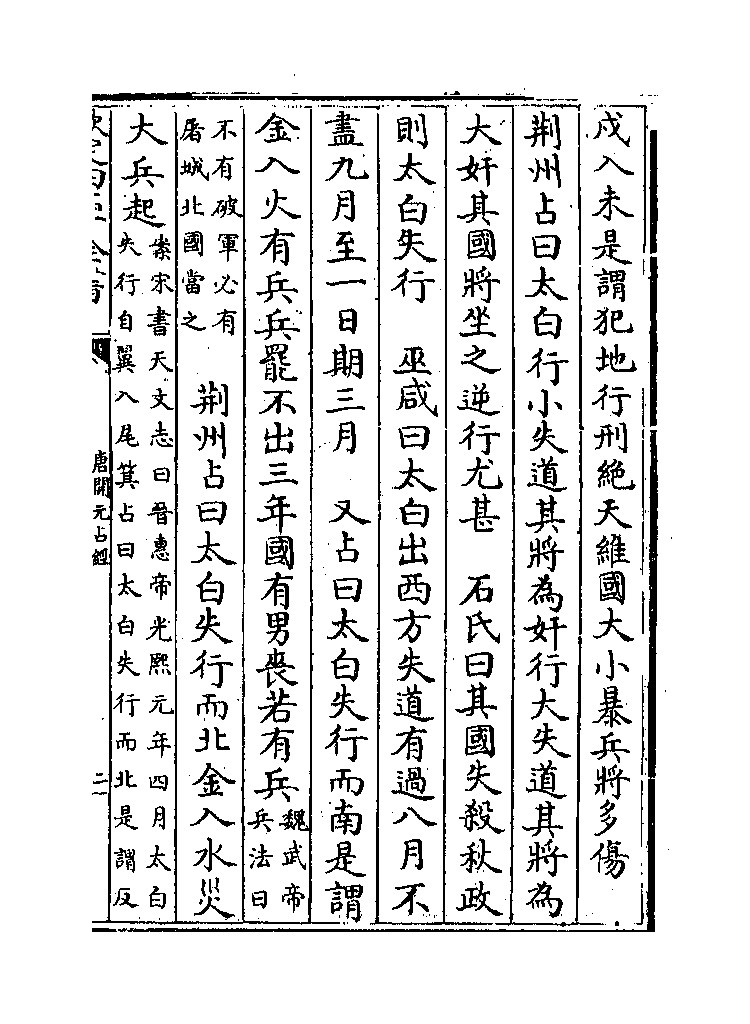 戍入未是謂犯地行刑絶天維國大小暴兵將多傷
荆州占曰太白行小失道其將為奸行大失道其將為
大奸其國將坐之逆行尤甚　石氏曰其國失殺秋政
則太白失行　巫咸曰太白出西方失道有過八月不
盡九月至一日期三月　又占曰太白失行而南是謂
金入火有兵兵罷不出三年國有男喪若有兵魏武帝兵法曰
不有破軍必有屠城北國當之　荆州占曰太白失行而北金入水災
大兵起案宋書天文志曰晉惠帝光熙元年四月太白失行自翼入尾箕占曰太白失行而北是謂反
唐開元占經
二